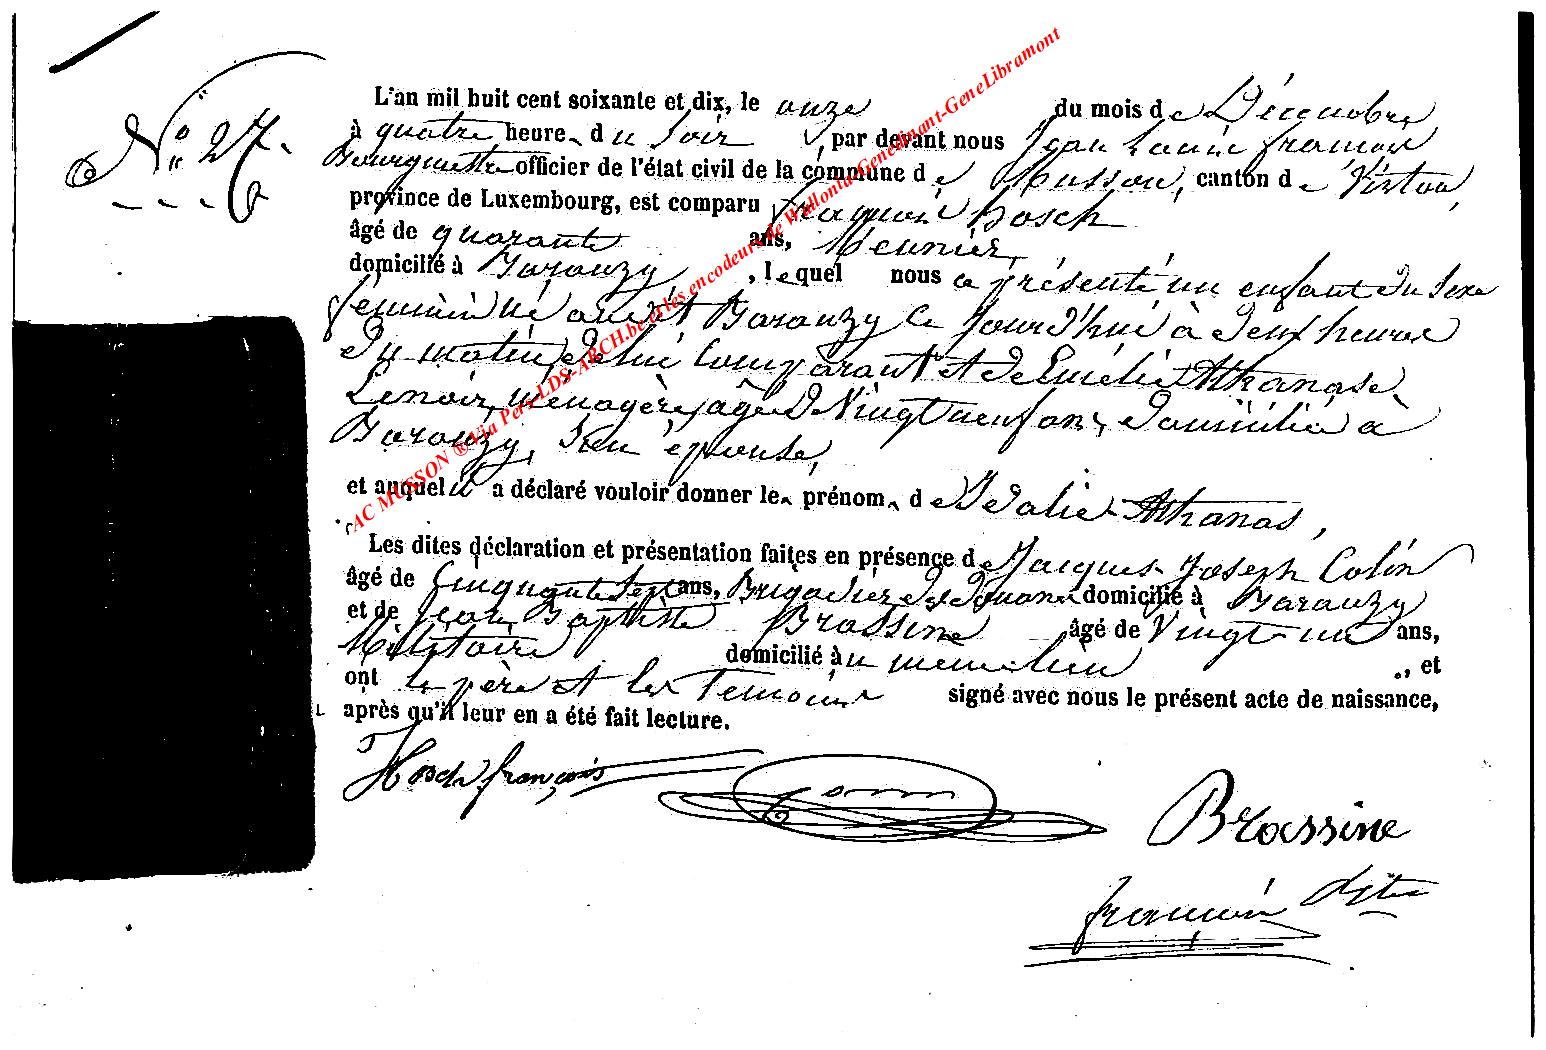 N° 27.
L'an mil huit cent soixante et dix, le onze du mois de Décembre
à quatre heure du Soir, par devant nous Jean Louis françois
Bourguette officier de l'état civil de la commune de Musson, canton de Virton,
province de Luxembourg, est comparu françois hosch
âgé de quarante ans, Meunier,
domicilié à Baranzy, lequel nous a présenté un enfant du Sexe
féminin né audit Baranzy ce jourd'hui à deux heures
du matin, de lui Comparant et de Emélie Athanase
Lenoir, ménagère, âgée de Vingt neuf ans, domicilié à
Baranzy, Son épouse,
et auquel il a déclaré vouloir donner le prénom de Idalie Athanas,
Les dites déclaration et présentation faites en présence de Jacques Joseph Colin
âgé de Cinquante Sept ans, Brigadier de douane domicilié à Baranzy
et de Jean Baptiste Brassine âgé de Vingt un ans,
Militaire domicilié au même lieu, et
ont le père et les Temoins signé avec nous le présent acte de naissance,
après qu'il leur en a été fait lecture.
Hosch françois
Brassine
françois
AC MUSSON ® Via Pers LDS-ARCH.be et les encodeurs de Wallonia-Genedinant-GeneLibramont